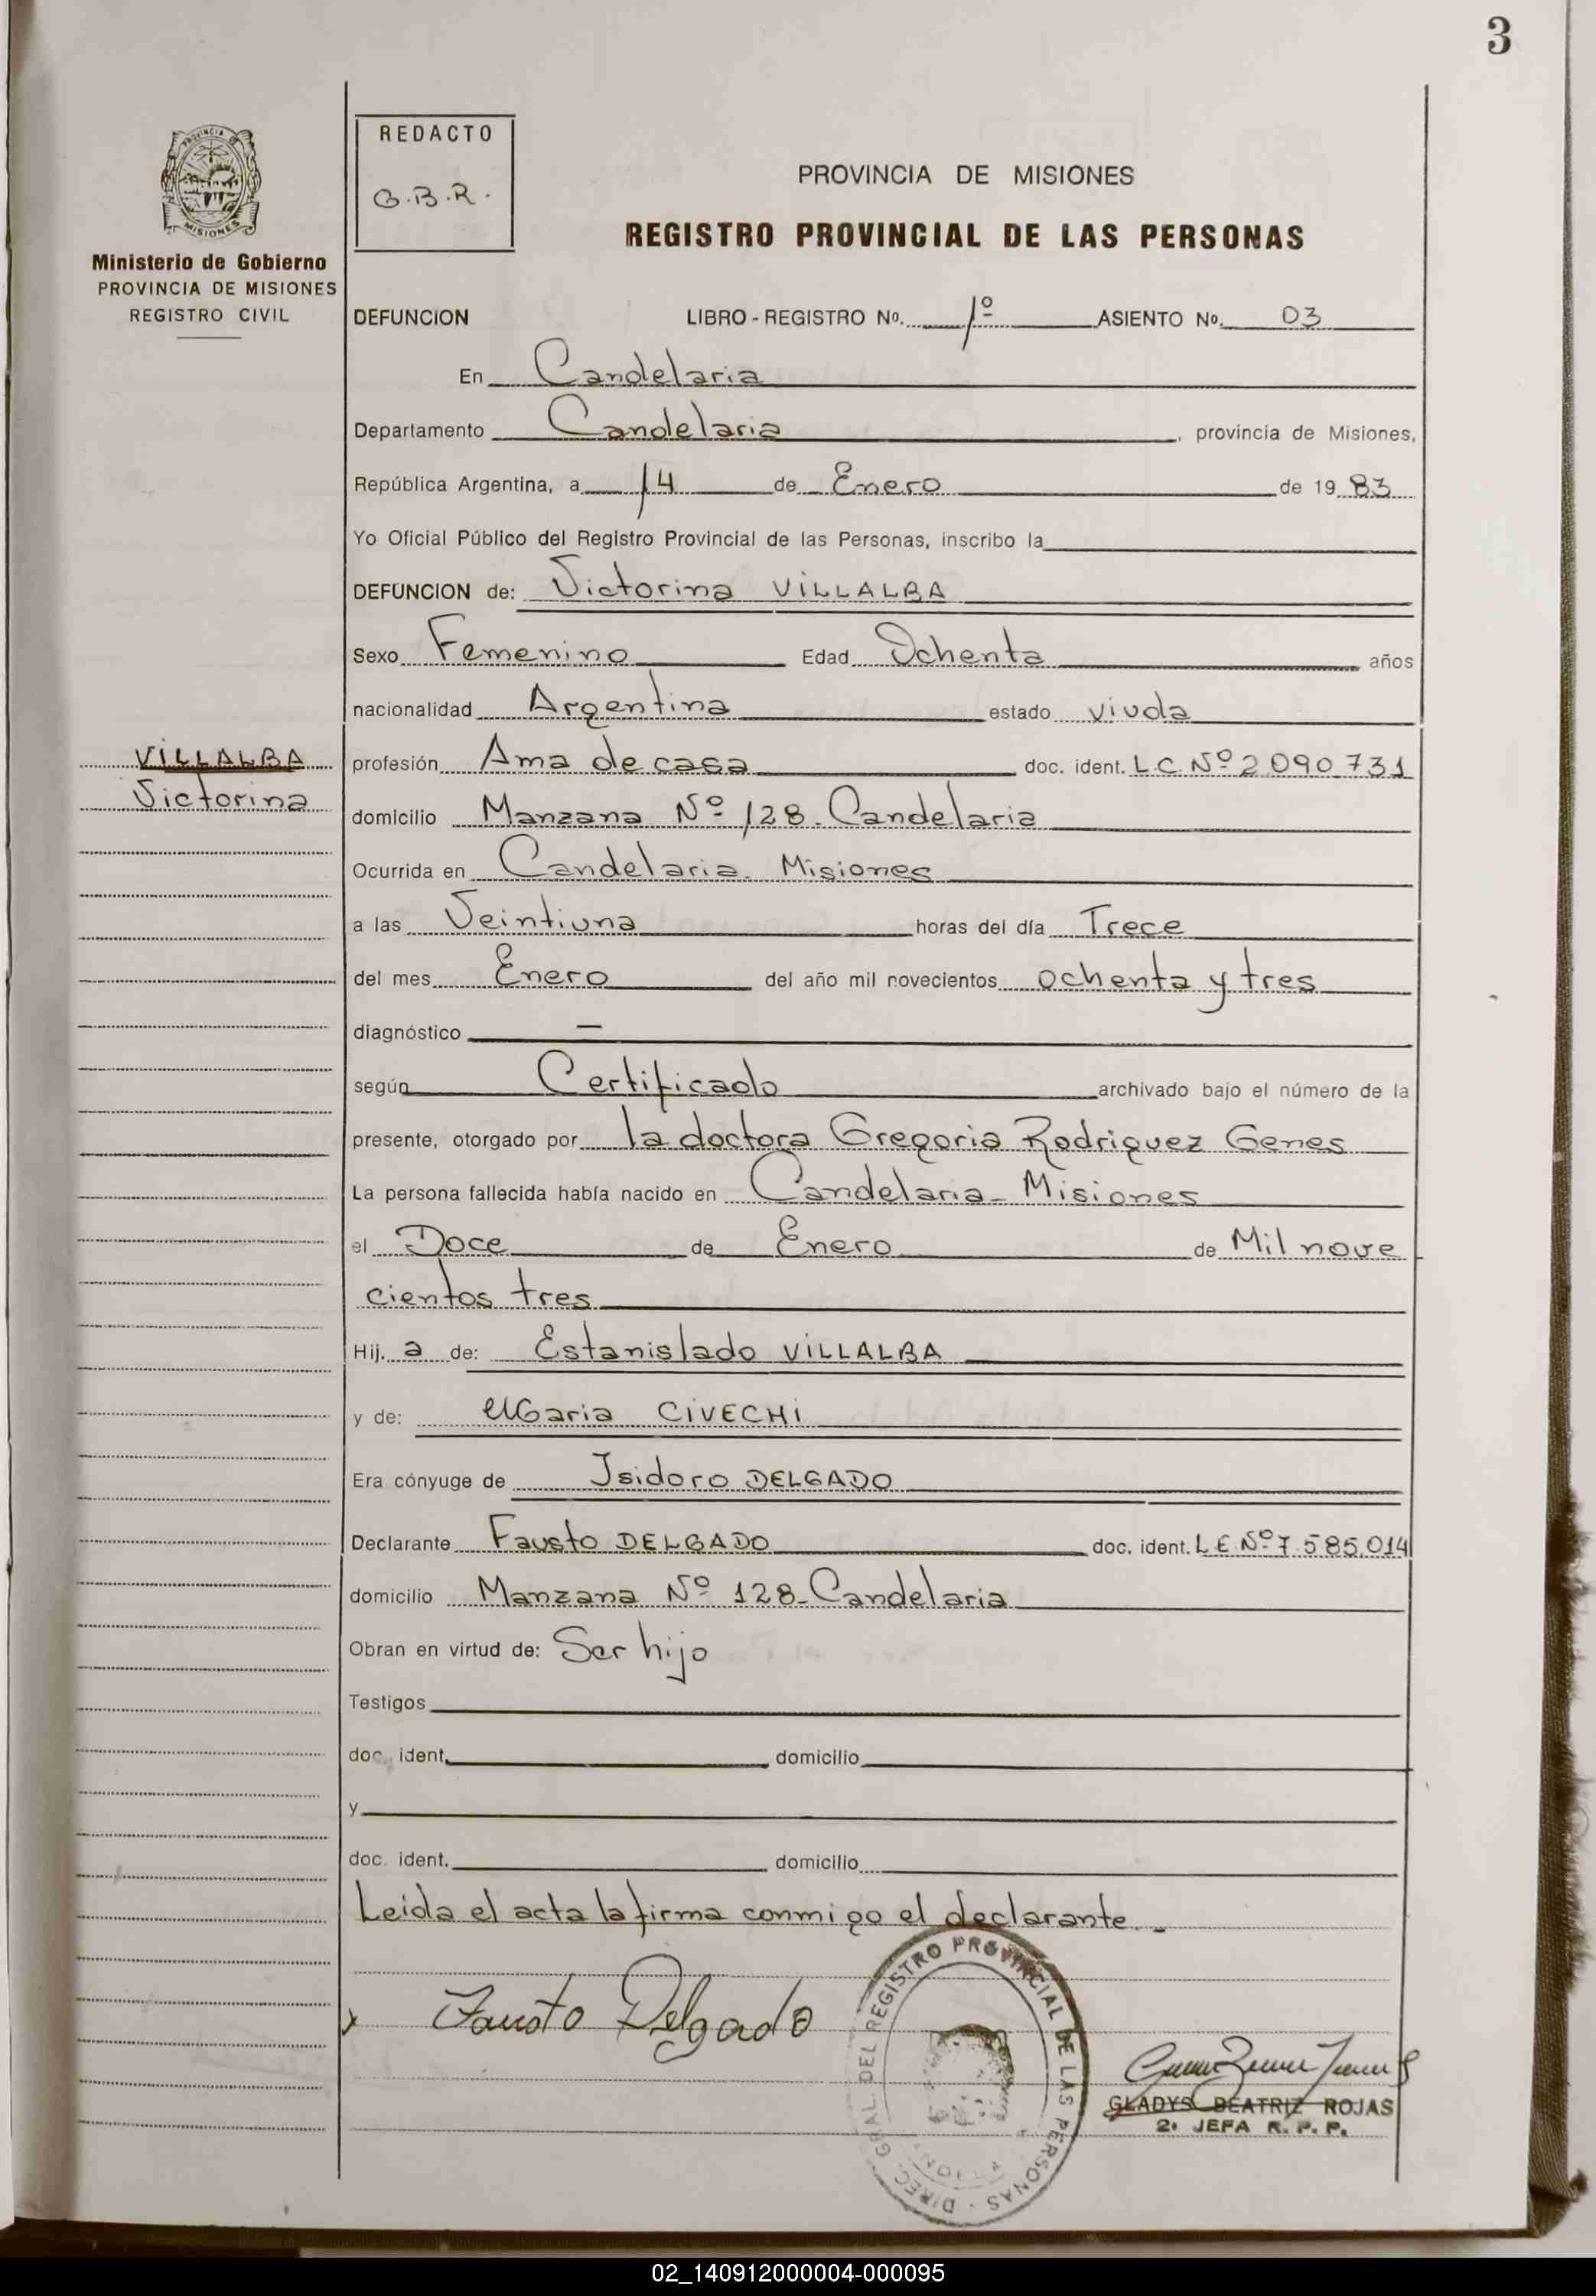 3
REDACTO
G.B.R.
PROVINCIA DE MISIONES
REGISTRO PROVINCIAL DE LAS PERSONAS
PROVINCIA DE
MISIONES
Ministerio de Gobierno
PROVINCIA DE MISIONES
REGISTRO CIVIL
DEFUNCION LIBRO - REGISTRO No. 1º ASIENTO No. 03
En Candelaria
Departamento Candelaria, provincia de Misiones,
República Argentina, a 14 de Enero de 1983
Yo Oficial Público del Registro Provincial de las Personas, inscribo la
DEFUNCION de: Victorina VILLALBA
Sexo Femenino Edad Ochenta años
nacionalidad Argentina estado viuda
VILLALBA
Victorina
profesión Ama de casa doc. ident. L.C. Nº 2.090.731
domicilio Manzana Nº 128 - Candelaria
Ocurrida en Candelaria - Misiones
a las Veintiuna horas del día Trece
del mes Enero del año mil novecientos ochenta y tres
diagnóstico —
según Certificado archivado bajo el número de la
presente, otorgado por la doctora Gregoria Rodriguez Genes
La persona fallecida había nacido en Candelaria - Misiones
el Doce de Enero de Mil nove
cientos tres
Hij a de: Estanislado VILLALBA
y de: Maria CIVECHI
Era cónyuge de Isidoro DELGADO
Declarante Fausto DELGADO doc. ident. L.E. Nº 7.585.014
domicilio Manzana Nº 128 - Candelaria
Obran en virtud de: Ser hijo
Testigos
doc. ident. domicilio
y
doc. ident. domicilio
Leída el acta la firma conmigo el declarante. -
Fausto Delgado
DIREC. GRAL DEL REGISTRO PROVINCIAL DE LAS PERSONAS
GLADYS BEATRIZ ROJAS
2ª JEFA R. P. P.
02_140912000004-000095